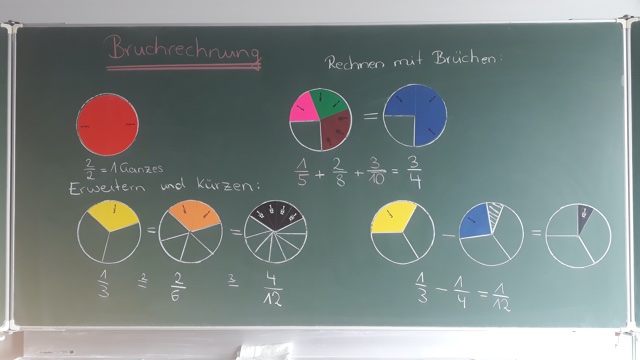 Bruchrechnung
Rechnen mit Brüchen:
2/2 = 1 Ganzes
1/5 + 2/8 + 3/10 = 3/4
Erweitern und Kürzen:
1/3 ≙ 2/6 ≙ 4/12
1/3 - 1/4 = 1/12